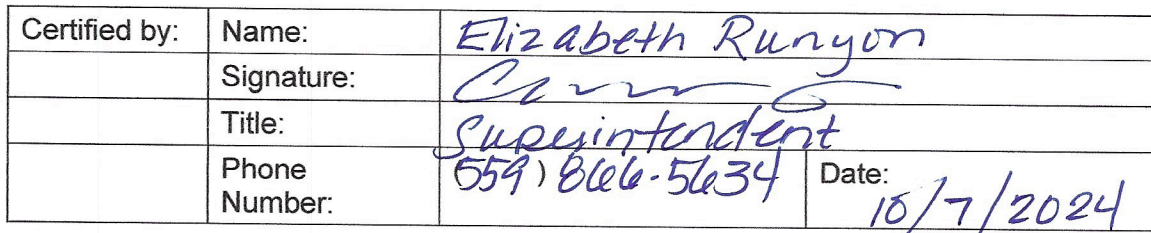 Certified by: Name: Elizabeth Runyon
Signature:
Title: Superintendent
Phone Number: (559) 866-5634 Date: 10/7/2024